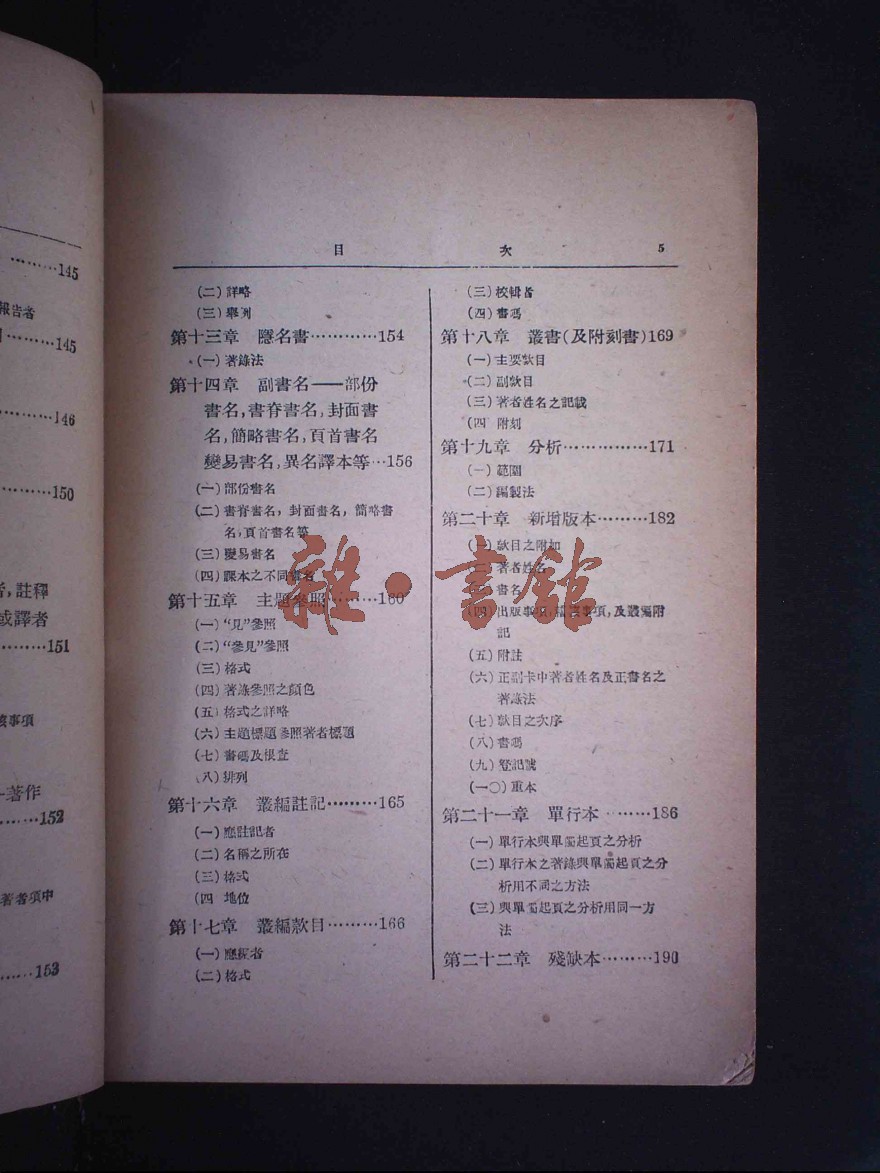 …………145
報告者
…………145
…………146
…………150
者,註釋
或譯者
…………151
該事項
著作
…………152
著者項中
…………153
目 次 5
(二)詳略
(三)舉列
第十三章 隱名書…………154
(一)著錄法
第十四章 副書名——部份
書名,書脊書名,封面書
名,簡略書名,頁首書名
變易書名,異名譯本等…156
(一)部份書名
(二)書脊書名,封面書名,簡略書
名,頁首書名等
(三)變易書名
(四)課本之不同書名
第十五章 主題參照………160
(一)“見”參照
(二)“參見”參照
(三)格式
(四)著錄參照之顏色
(五)格式之詳略
(六)主題標題參照著者標題
(七)書碼及根查
(八)排列
第十六章 叢編註記………165
(一)應註記者
(二)名稱之所在
(三)格式
(四 地位
第十七章 叢編款目………166
(一)應編者
(二)格式
(三)校輯者
(四)書碼
第十八章 叢書(及附刻書)169
(一)主要款目
(二)副款目
(三)著者姓名之記載
(四 附刻
第十九章 分析……………171
(一)範圍
(二)編製法
第二十章 新增版本………182
(一)款目之附加
(二)著者姓名
書名
(四)出版事項,稽核事項,及叢編附
記
(五)附註
(六)正副卡中著者姓名及正書名之
著錄法
(七)款目之次序
(八)書碼
(九)登記號
(一〇)重本
第二十一章 單行本………186
(一)單行本與單獨起頁之分析
(二)單行本之著錄與單獨起頁之分
析用不同之方法
(三)與單獨起頁之分析用同一方
法
第二十二章 殘缺本………190
雜·書館